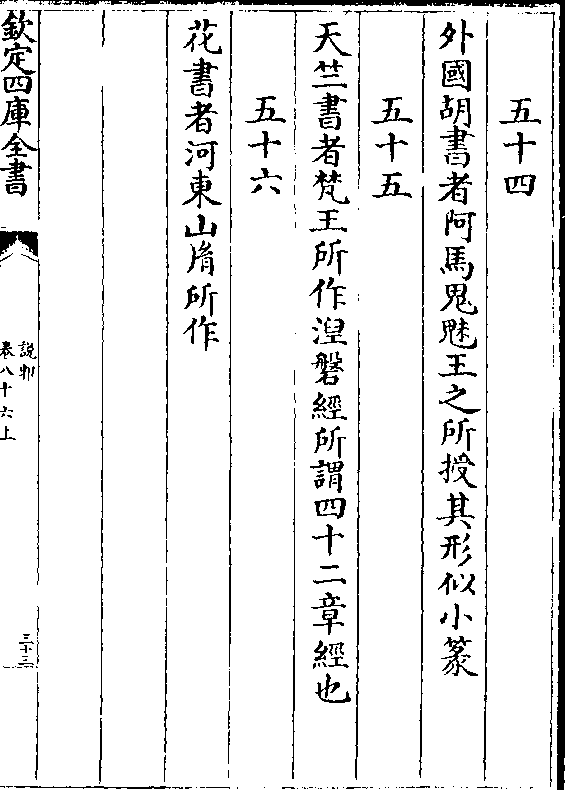 五十四
外國胡書者阿馬鬼魅王之所授其形似小篆
五十五
天竺書者梵王所作湼磐經所謂四十二章經也
五十六
花書者河東山㣧所作
欽定四庫全書
說郛
卷八十六上
三十三